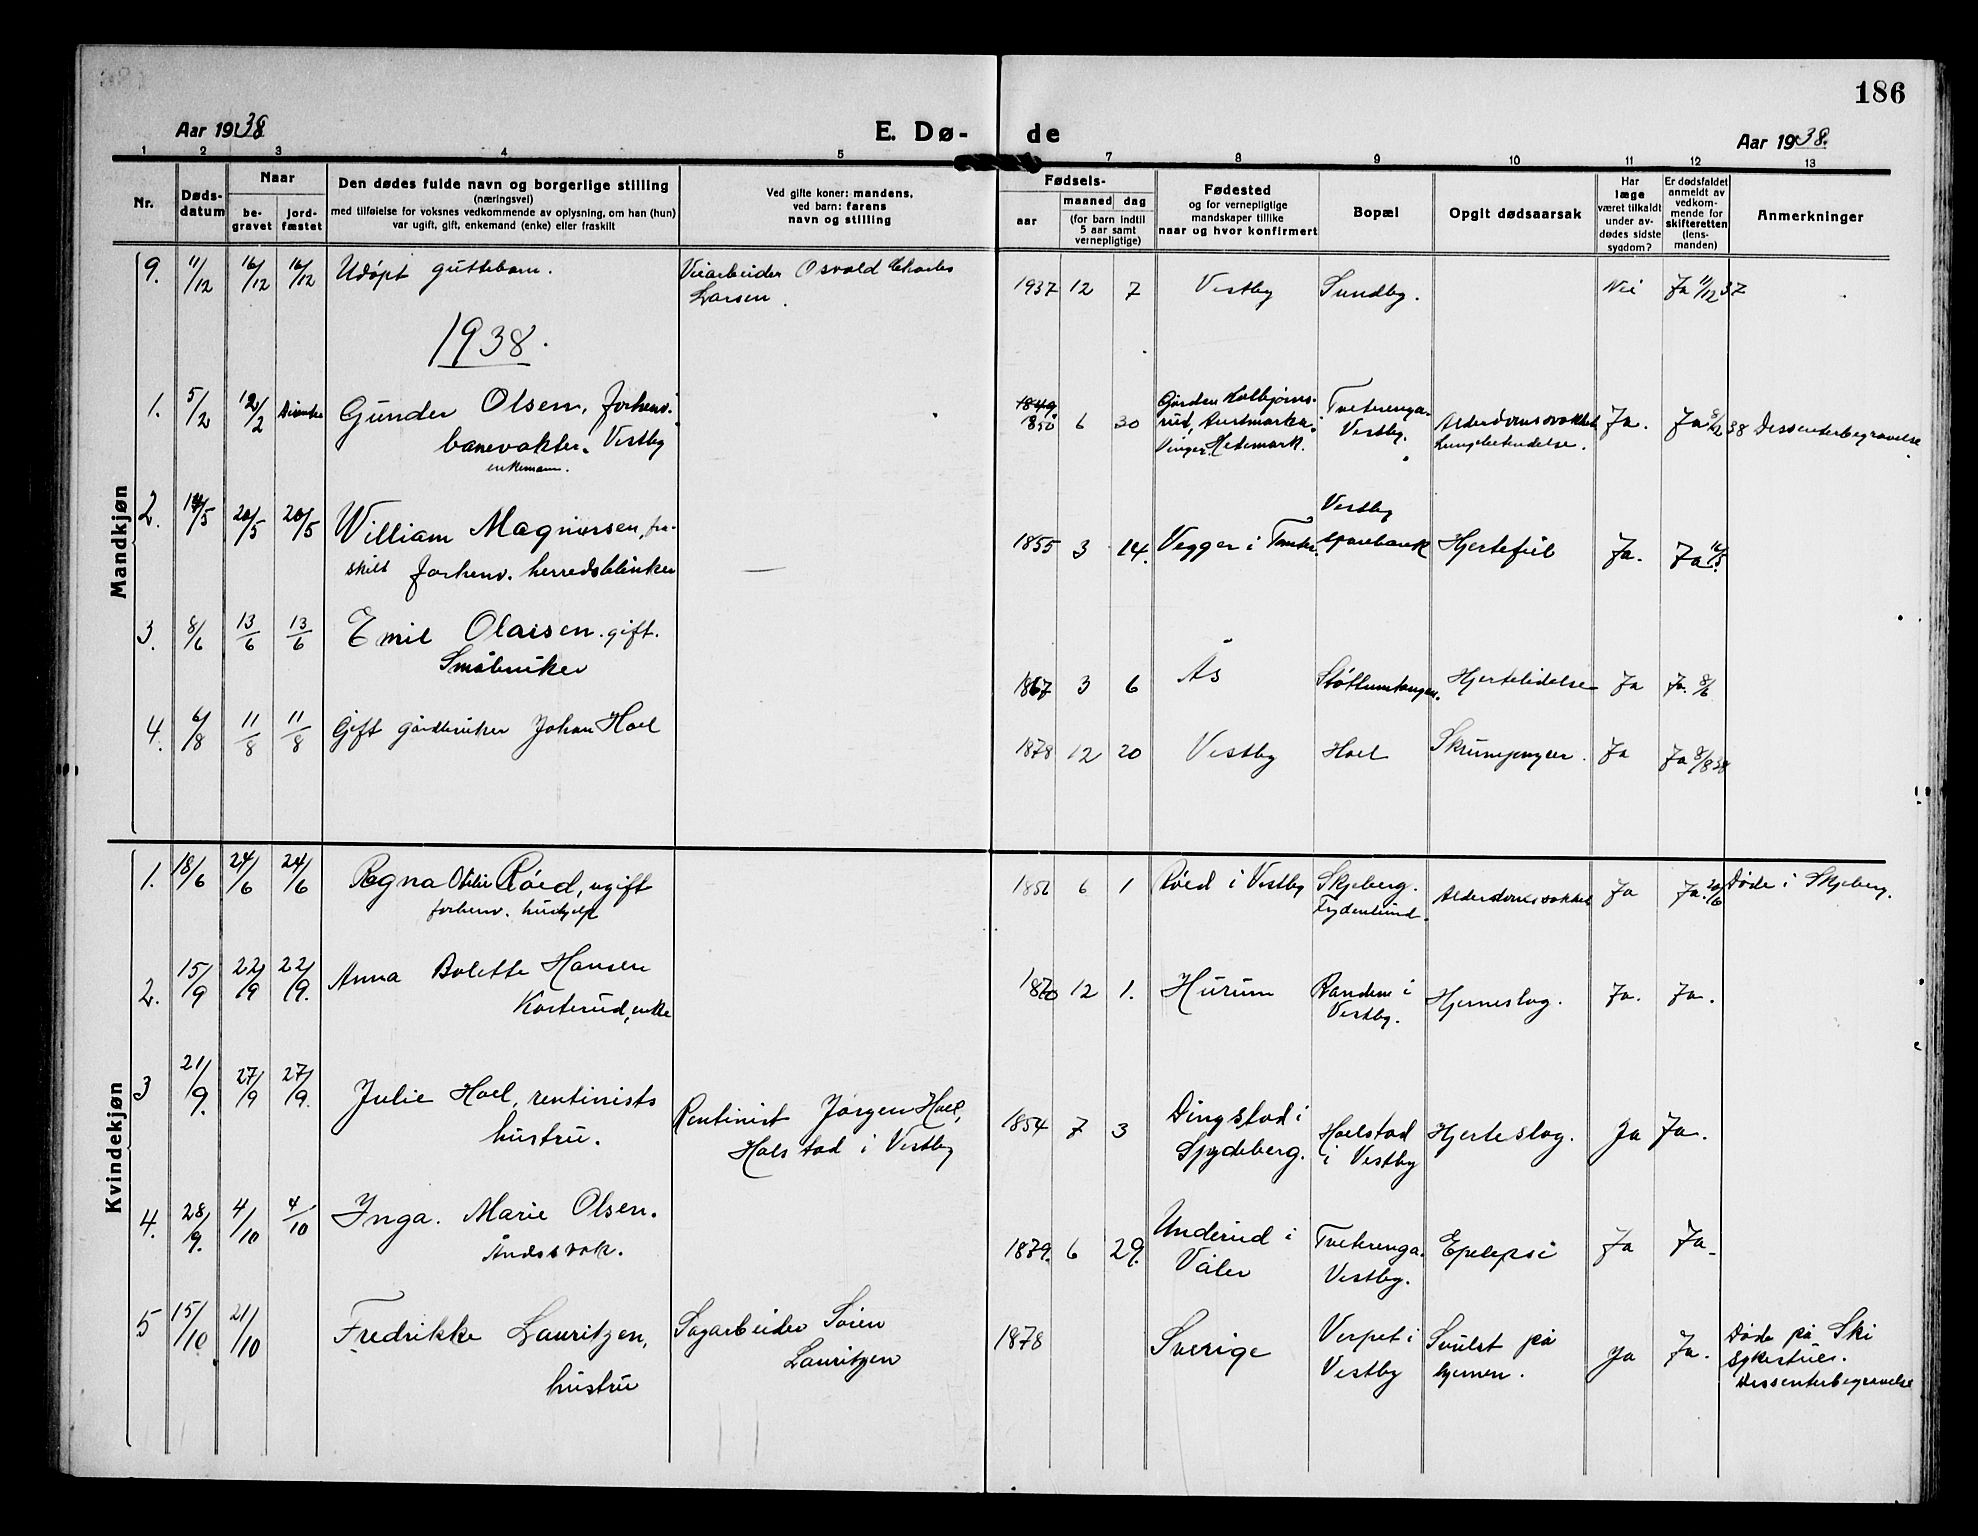 186
Aar 1938
E. Dø-
de
Aar 1938.
1 2 3 4 5 7 8 9 10 11 12 13
Nr.
Døds-
datum
Naar
be-
gravet
jord-
fæstet
Den dødes fulde navn og borgerlige stilling
(næringsvei)
med tilføielse for voksnes vedkommende av oplysning, om han (hun)
var ugift, gift, enkemand (enke) eller fraskilt
Ved gifte koner: mandens,
ved barn: farens
navn og stilling
Fødsels-
aar
maaned dag
(for barn indtil
5 aar samt
vernepligtige)
Fødested
og for vernepligtige
mandskaper tillike
naar og hvor konfirmert
Bopæl
Opgit dødsaarsak
Har
læge
været tilkaldt
under av-
dødes sidste
sygdom?
Er dødsfaldet
anmeldt av
vedkom-
mende for
skifteretten
(lens-
manden)
Anmerkninger
Mandkjøn
9. 11/12 16/12 16/12 Udøpt guttebarn. Veiarbeider Osvald Charles
Larsen.
1937 12 7 Vestby Sundby. Nei Ja 11/12 37
1938.
1. 5/2 12/2 Gunder Olsen, forhenv.
banevokter, Vestby
enkemann.
1849
1850 6 30
Vinger. Hedemark.
Tveterenga.
Vestby.
Alderdomssvakhet
Lungebetendelse.
Ja. Ja 8/2 38 Dissenterbegravelse.
2. 14/5 20/5 20/5 William Magnussen, fra-
skilt forhenv. herredsblinker
—
1855 3 14. Vegger i
Vestby
sparebank
Hjertefeil Ja. Ja 16/5.
3. 8/6 13/6 13/6 Emil Olaisen. gift.
Småbruker
1867 3 6 Ås Støttumtangen. Hjertelidelse Ja Ja. 8/6
4. 6/8 11/8 11/8 Gift gårdbruker Johan Hoel
1878 12 20 Vestby Hoel Skrumpnyrer. Ja Ja 8/8 38
Kvindekjøn
1. 18/6 24/6 24/6 Ragna Otilie Røed, ugift
forhenv. hushjelp
1856 6 1 Røed i Vestby Skjeberg.
Frydenlund.
Alderdomssvakhet Ja Ja. 20/6 Døde i Skjeberg.
2. 15/9 22/9 22/9. Anna Bolette Hansen
Kosterud, enke
1870 12 1. Hurum Randem i
Vestby.
Hjerneslag. Ja. Ja.
3 21/9. 27/9 27/9. Julie Hoel, rentinists
hustru.
Rentinist Jørgen Hoel,
Holstad i Vestby
1854 7 3 Dingstad i
Spydeberg.
Hoelstad
i Vestby
Hjerteslag. Ja Ja.
4. 28/9. 4/10 4/10 Inga. Marie Olsen.
Åndssvak.
1879. 6 29. Underud i
Våler
Tveterenga.
Vestby.
Epelepsi Ja Ja.
5 15/10 21/10 Fredrikke Lauritzen,
hustru
Sagarbeider Søren
Lauritzen
1878 Sverige Verpet i
Vestby
Svulst på
hjernen.
Ja Ja. Døde på Ski
sykestue.
Dissenterbegravelse